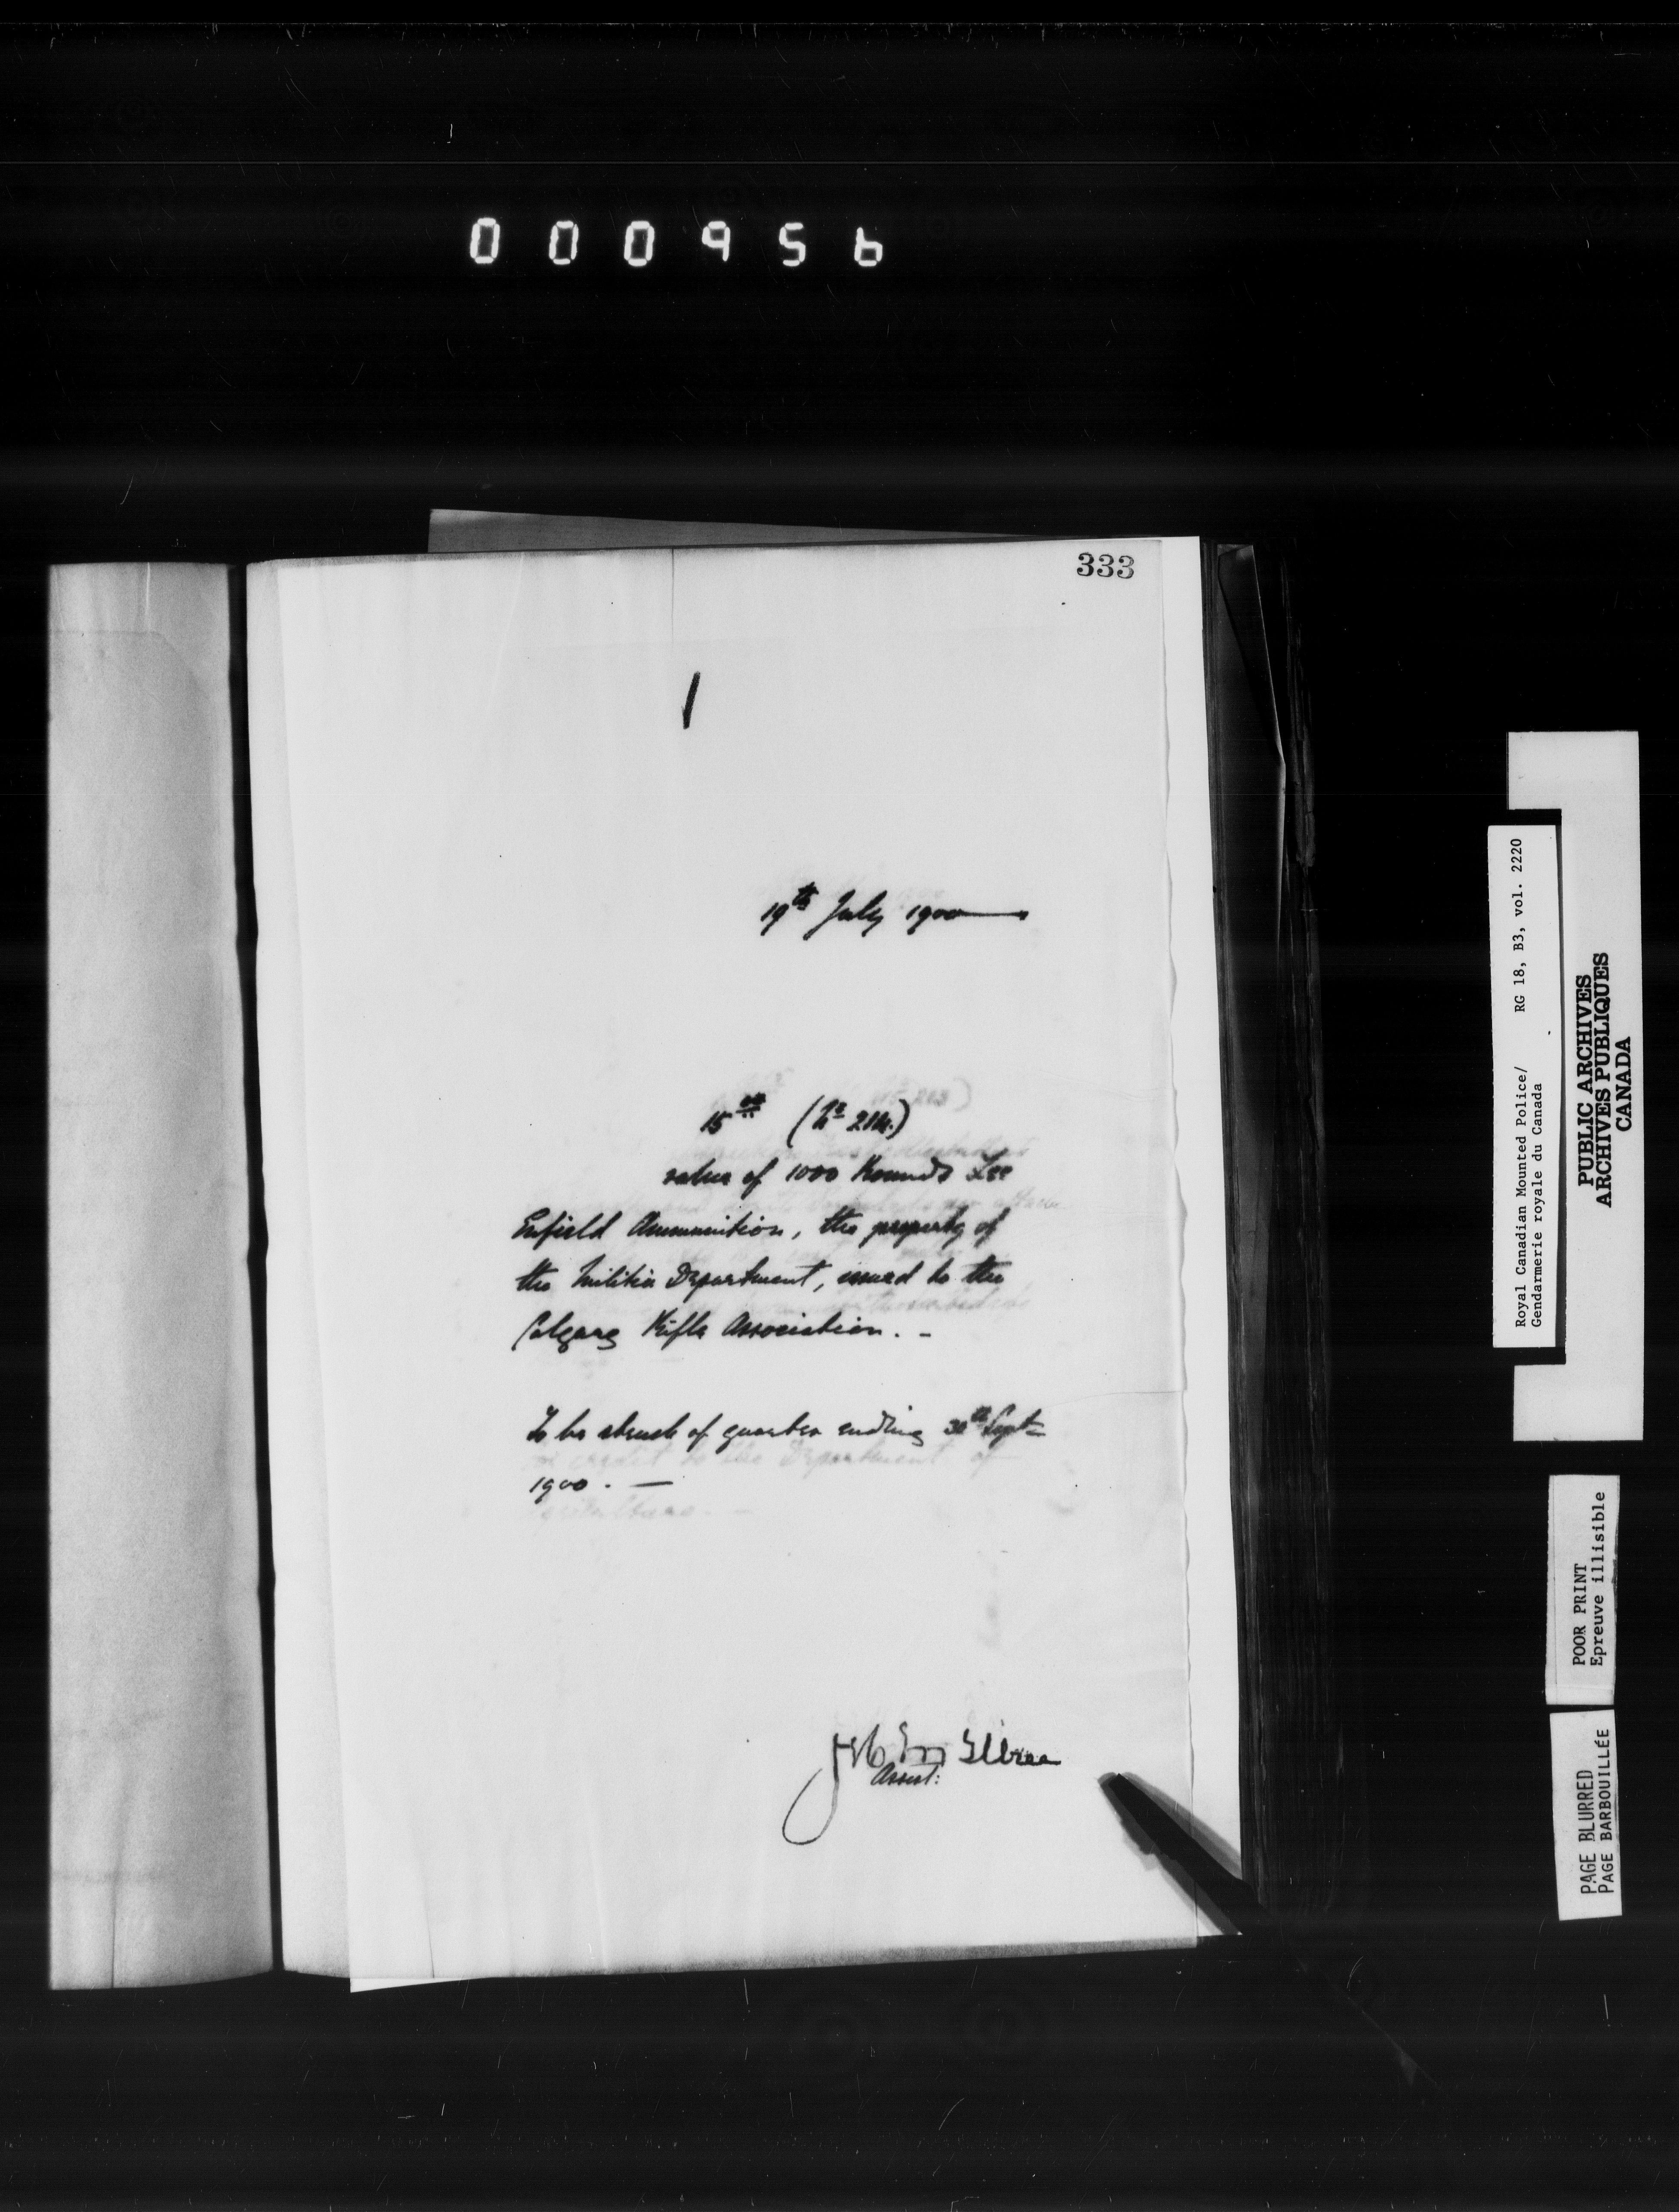 000956
333
19th July 1900
15.00 (No 214.)
value of 1000 Rounds Lee
Enfield Ammunition, the property of
the Militia Department, issued to the
Calgary Rifle Association. -
To be struck of quarter ending 30th Sept
1900. —
Asst:
Royal Canadian Mounted Police/ RG 18, B3, vol. 2220
Gendarmerie royale du Canada
PUBLIC ARCHIVES
ARCHIVES PUBLIQUES
CANADA
POOR PRINT
Epreuve illisible
PAGE BLURRED
PAGE BARBOUILLÉE